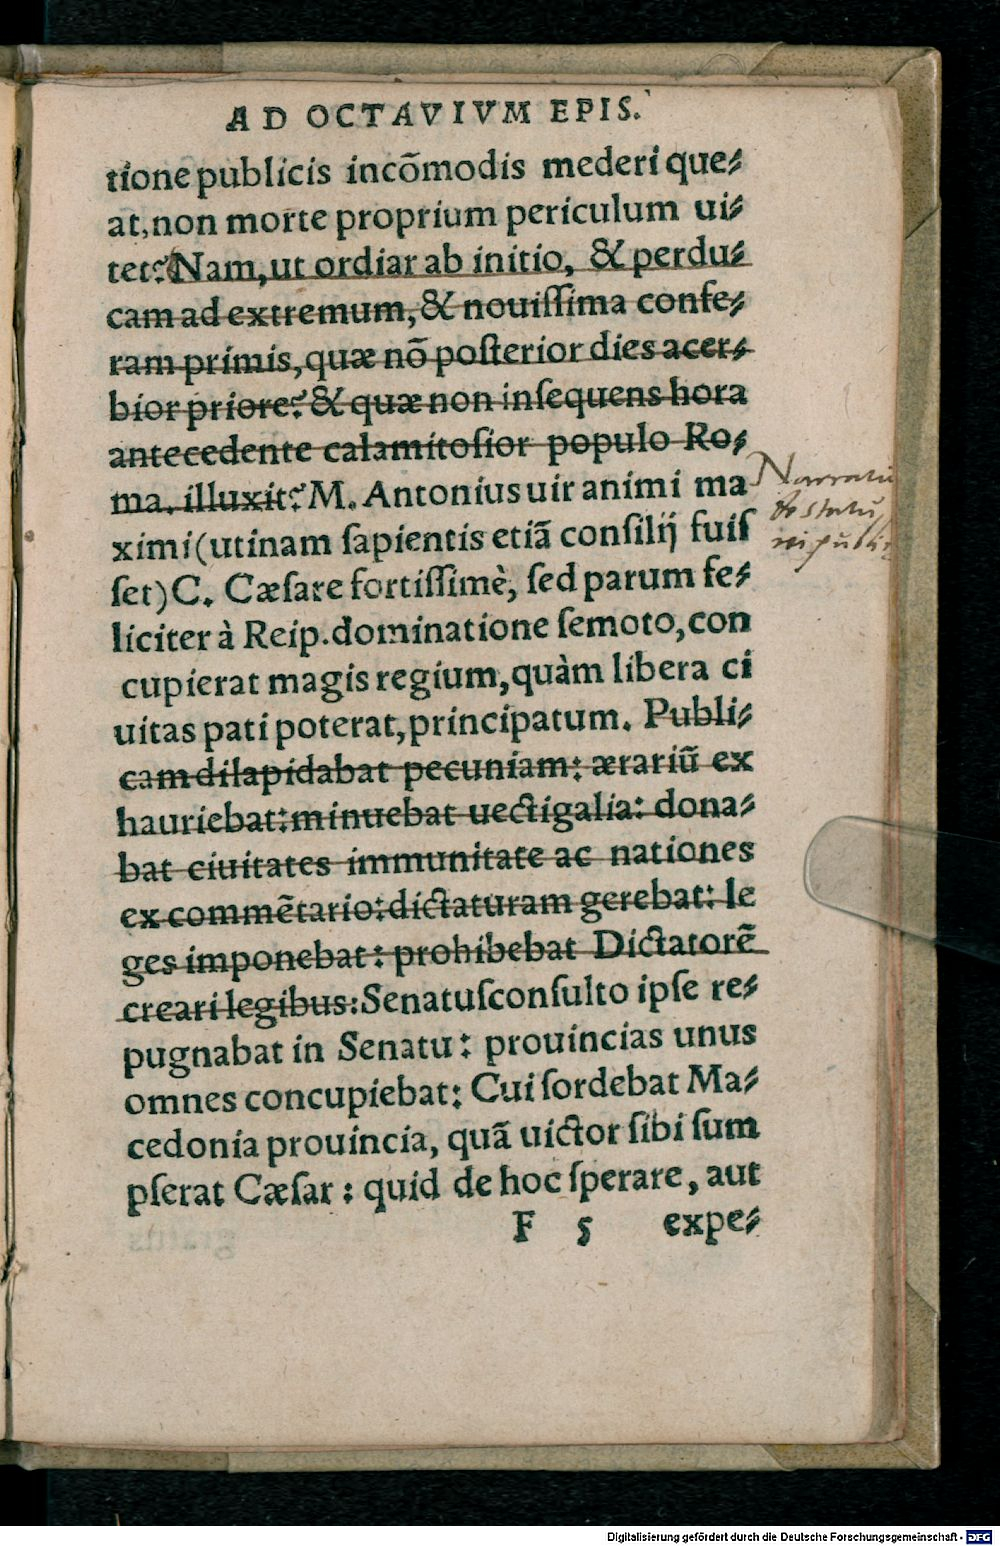 AD OCTAVIVM EPIS.
tione publicis incõmodis mederi que⸗
at, non morte proprium periculum ui⸗
tet? Nam, ut ordiar ab initio, & perdu⸗
cam ad extremum, & nouiſſima confe⸗
ram primis, quæ nõ poſterior dies acer⸗
bior priore? & quæ non inſequens hora
antecedente calamitoſior populo Ro⸗
ma. illuxit? M. Antonius uir animi ma
ximi (utinam ſapientis etiã conſilij fuiſ
ſet) C. Cæſare fortiſſimè, ſed parum fe⸗
liciter à Reip. dominatione ſemoto, con
cupierat magis regium, quàm libera ci
uitas pati poterat, principatum. Publi⸗
cam dilapidabat pecuniam: ærariũ ex
hauriebat: minuebat uectigalia: dona⸗
bat ciuitates immunitate ac nationes
ex commẽtario: dictaturam gerebat: le
ges imponebat: prohibebat Dictatorẽ
creari legibus: Senatuſconſulto ipſe re⸗
pugnabat in Senatu: prouincias unus
omnes concupiebat: Cui ſordebat Ma⸗
cedonia prouincia, quã uictor ſibi ſum
pſerat Cæſar: quid de hoc ſperare, aut
F 5 expe⸗
Digitalisierung gefördert durch die Deutsche Forschungsgemeinschaft - DFG